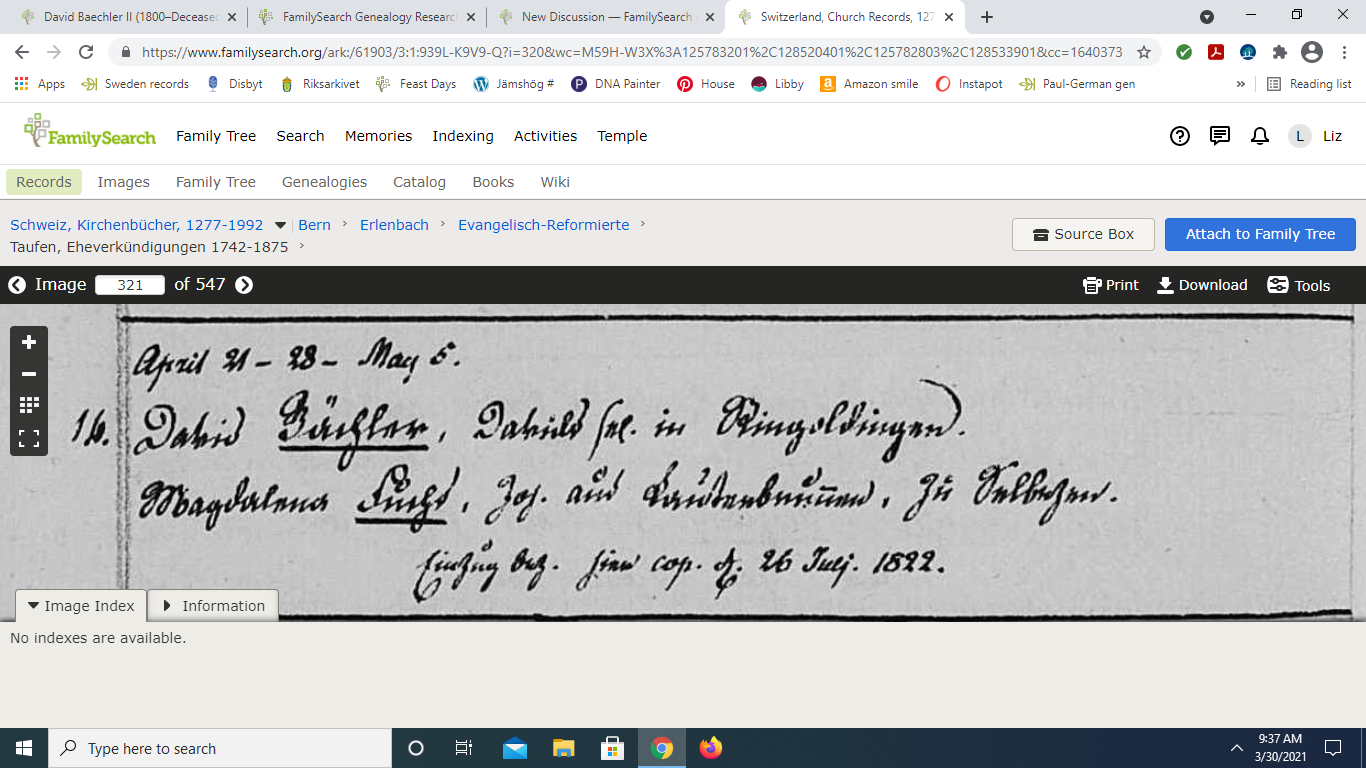 David Baechler II (1800–Decease
FamilySearch Genealogy Researc
New Discussion — FamilySearch
Switzerland, Church Records, 127
https://www.familysearch.org/ark:/61903/3:1:939L-K9V9-Q?i=320&wc=M59H-W3X%3A125783201%2C128520401%2C125782803%2C128533901&cc=1640373
Apps Sweden records Disbyt Riksarkivet Feast Days Jämshög # DNA Painter House Libby Amazon smile Instapot Paul-German gen » Reading list
FamilySearch Family Tree Search Memories Indexing Activities Temple L Liz
Records Images Family Tree Genealogies Catalog Books Wiki
Schweiz, Kirchenbücher, 1277-1992 Bern Erlenbach Evangelisch-Reformierte
Taufen, Eheverkündigungen 1742-1875
Source Box Attach to Family Tree
Image 321 of 547 Print Download Tools
April 21 – 28 – May 5.
16. David Bächler, Davids sel. in Ringoldingen.
Magdalena Fuchs, Jos. aus Lauterbrunnen, zu
Einzug bez. hier cop. d. 26 Julj. 1822.
Image Index Information
No indexes are available.
Type here to search
9:37 AM
3/30/2021